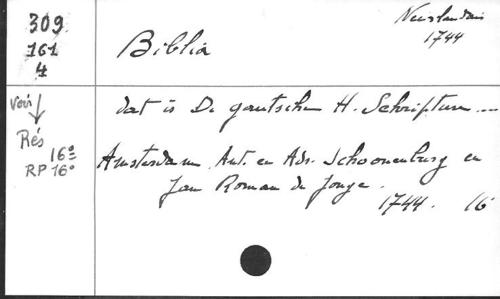 309
161
4
Neerlandais
1744
Biblia
voir
Rés
16°
RP 16°
dat is De gantsche H. Schriftuur ...
Amsterdam, Ant. en Adr. Schoonenburg en
Jan Roman de Jonge.
1744. 16°